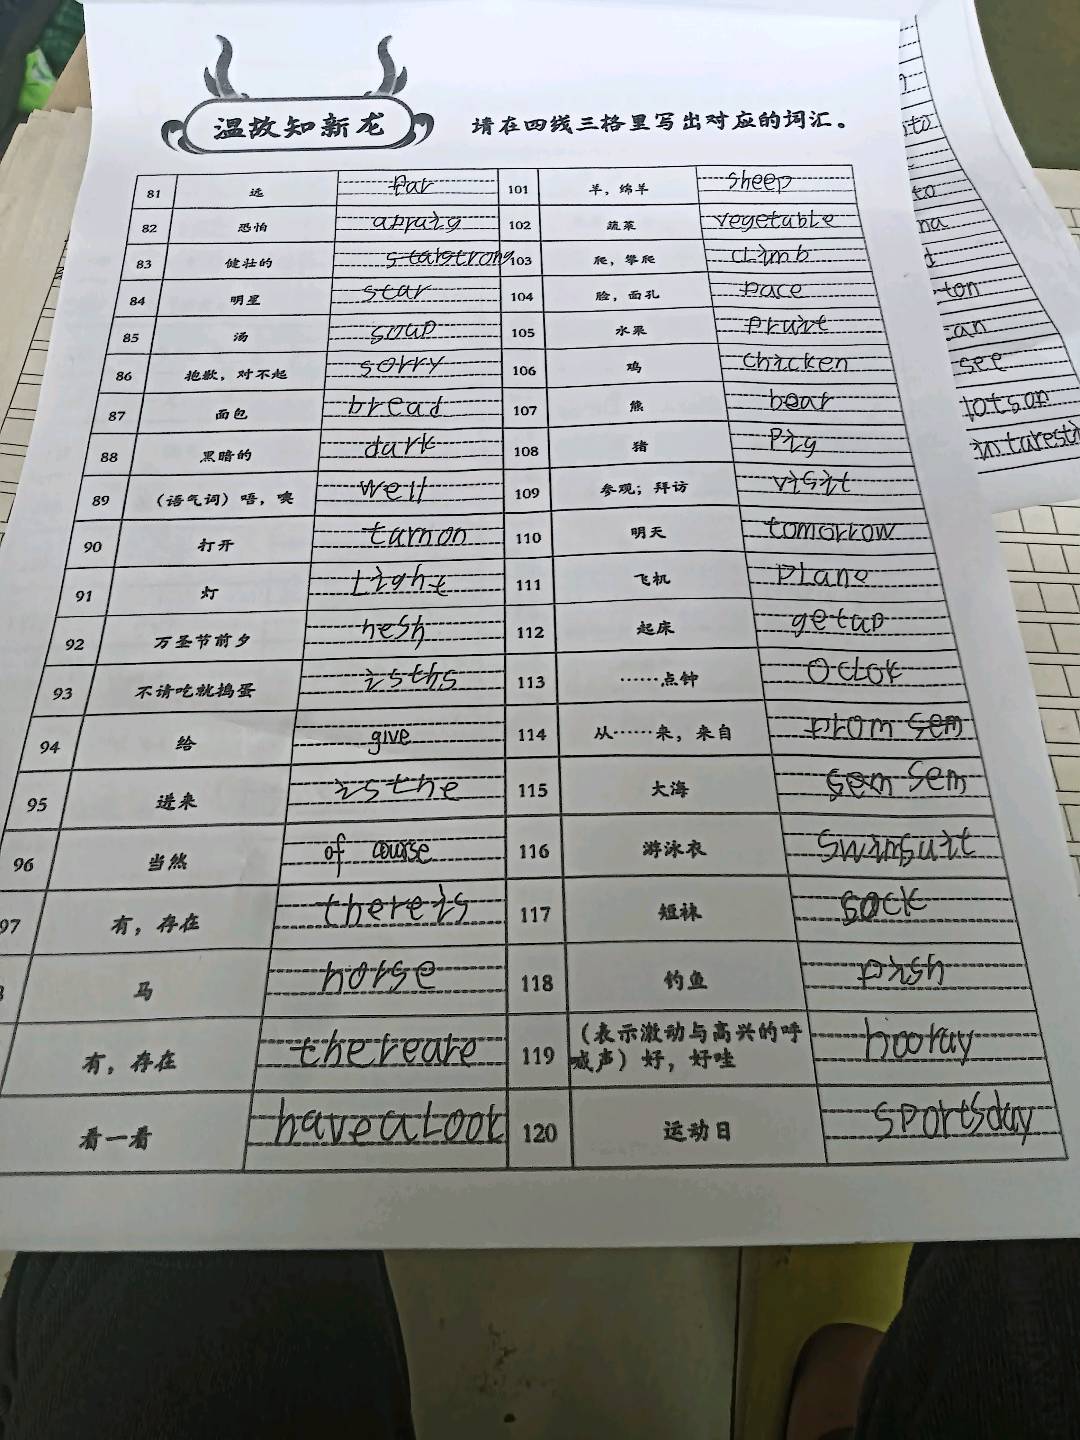 温故知新龙
请在四线三格里写出对应的词汇。
81 远 par 101 羊，绵羊 sheep
82 恐怕 apraig 102 蔬菜 vegetable
83 健壮的 starstrong 103 爬，攀爬 climb
84 明星 star 104 脸，面孔 pace
85 汤 soup 105 水果 pruit
86 抱歉，对不起 sorry 106 鸡 chicken
87 面包 bread 107 熊 bear
88 黑暗的 dark 108 猪 Pig
89 （语气词）唔，噢 well 109 参观；拜访 visit
90 打开 turnon 110 明天 tomorrow
91 灯 Light 111 飞机 PLane
92 万圣节前夕 hesh 112 起床 getup
93 不请吃就捣蛋 isths 113 ……点钟 Oclok
94 给 give 114 从……来，来自 prom sem
95 进来 isthe 115 大海 sem sem
96 当然 of course 116 游泳衣 swimsuit
97 有，存在 thereis 117 短袜 sock
马 horse 118 钓鱼 pish
有，存在 thereare 119 （表示激动与高兴的呼喊声）好，好哇 hooray
看一看 haveaLook 120 运动日 sportsday
to
to
na
d
ton
an
see
lotson
intaresti